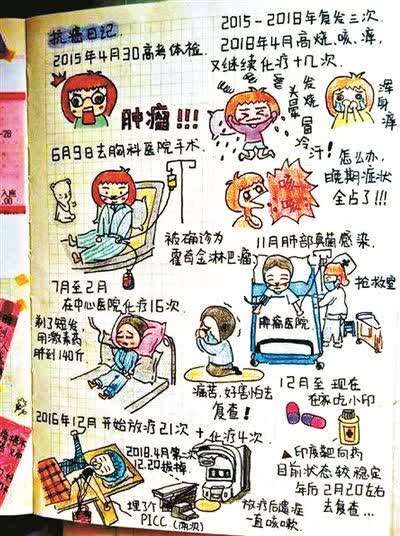 抗癌日记
2015年4月30高考体检.
肿瘤!!!
6月9日去胸科医院手术.
被确诊为
霍奇金淋巴瘤
7月至2月
在中心医院化疗16次
剃了短发
用激素药
胖到140斤.
痛苦,好害怕去
复查!
2016年12月开始放疗21次+化疗4次
2018.4月第二次
12.20拔掉
埋了个
PICC(两次)
放疗后窝症
一直咳嗽.
2015-2018年复发三次.
2018年4月高烧、咳、痒,
又继续化疗十几次.
发烧
头晕
冒冷汗!
浑身痒
咳咳
怎么办,
晚期症状
全占了!!!
11月肺部真菌感染.
抢救室
肿瘤医院
12月至现在
在家吃小印
▲印度靶向药
目前状态较稳定
年后2月20左右
去复查...